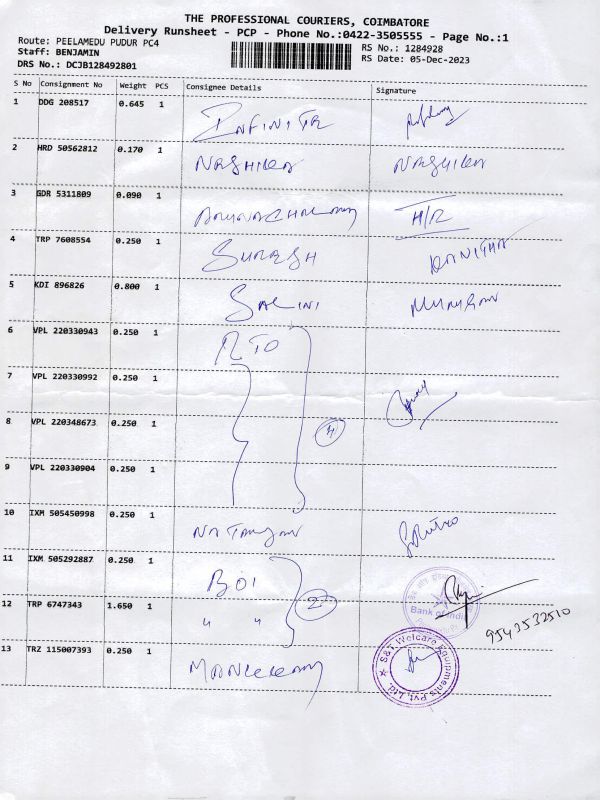 THE PROFESSIONAL COURIERS, COIMBATORE
Delivery Runsheet - PCP - Phone No.:0422-3505555 - Page No.:1
Route: PEELAMEDU PUDUR PC4
Staff: BENJAMIN
DRS No.: DCJB128492801
RS No.: 1284928
RS Date: 05-Dec-2023
S No Consignment No Weight PCS Consignee Details Signature
1 DDG 208517 0.645 1 INFINITE
2 HRD 50562812 0.170 1 NASHIKA NASHIKA
3 GDR 5311809 0.090 1 H/R
4 TRP 7608554 0.250 1 SURESH KANITHA
5 KDI 896826 0.800 1 SALINI MURUGAN
6 VPL 220330943 0.250 1 RTO
7 VPL 220330992 0.250 1
8 VPL 220348673 0.250 1 4
9 VPL 220330904 0.250 1
10 IXM 505450998 0.250 1 NATARAJAN
11 IXM 505292887 0.250 1 BOI
12 TRP 6747343 1.650 1 " " 2
Bank of India
9543532510
13 TRZ 115007393 0.250 1 MANICKAM
S&T Welcare Equipments Pvt. Ltd.